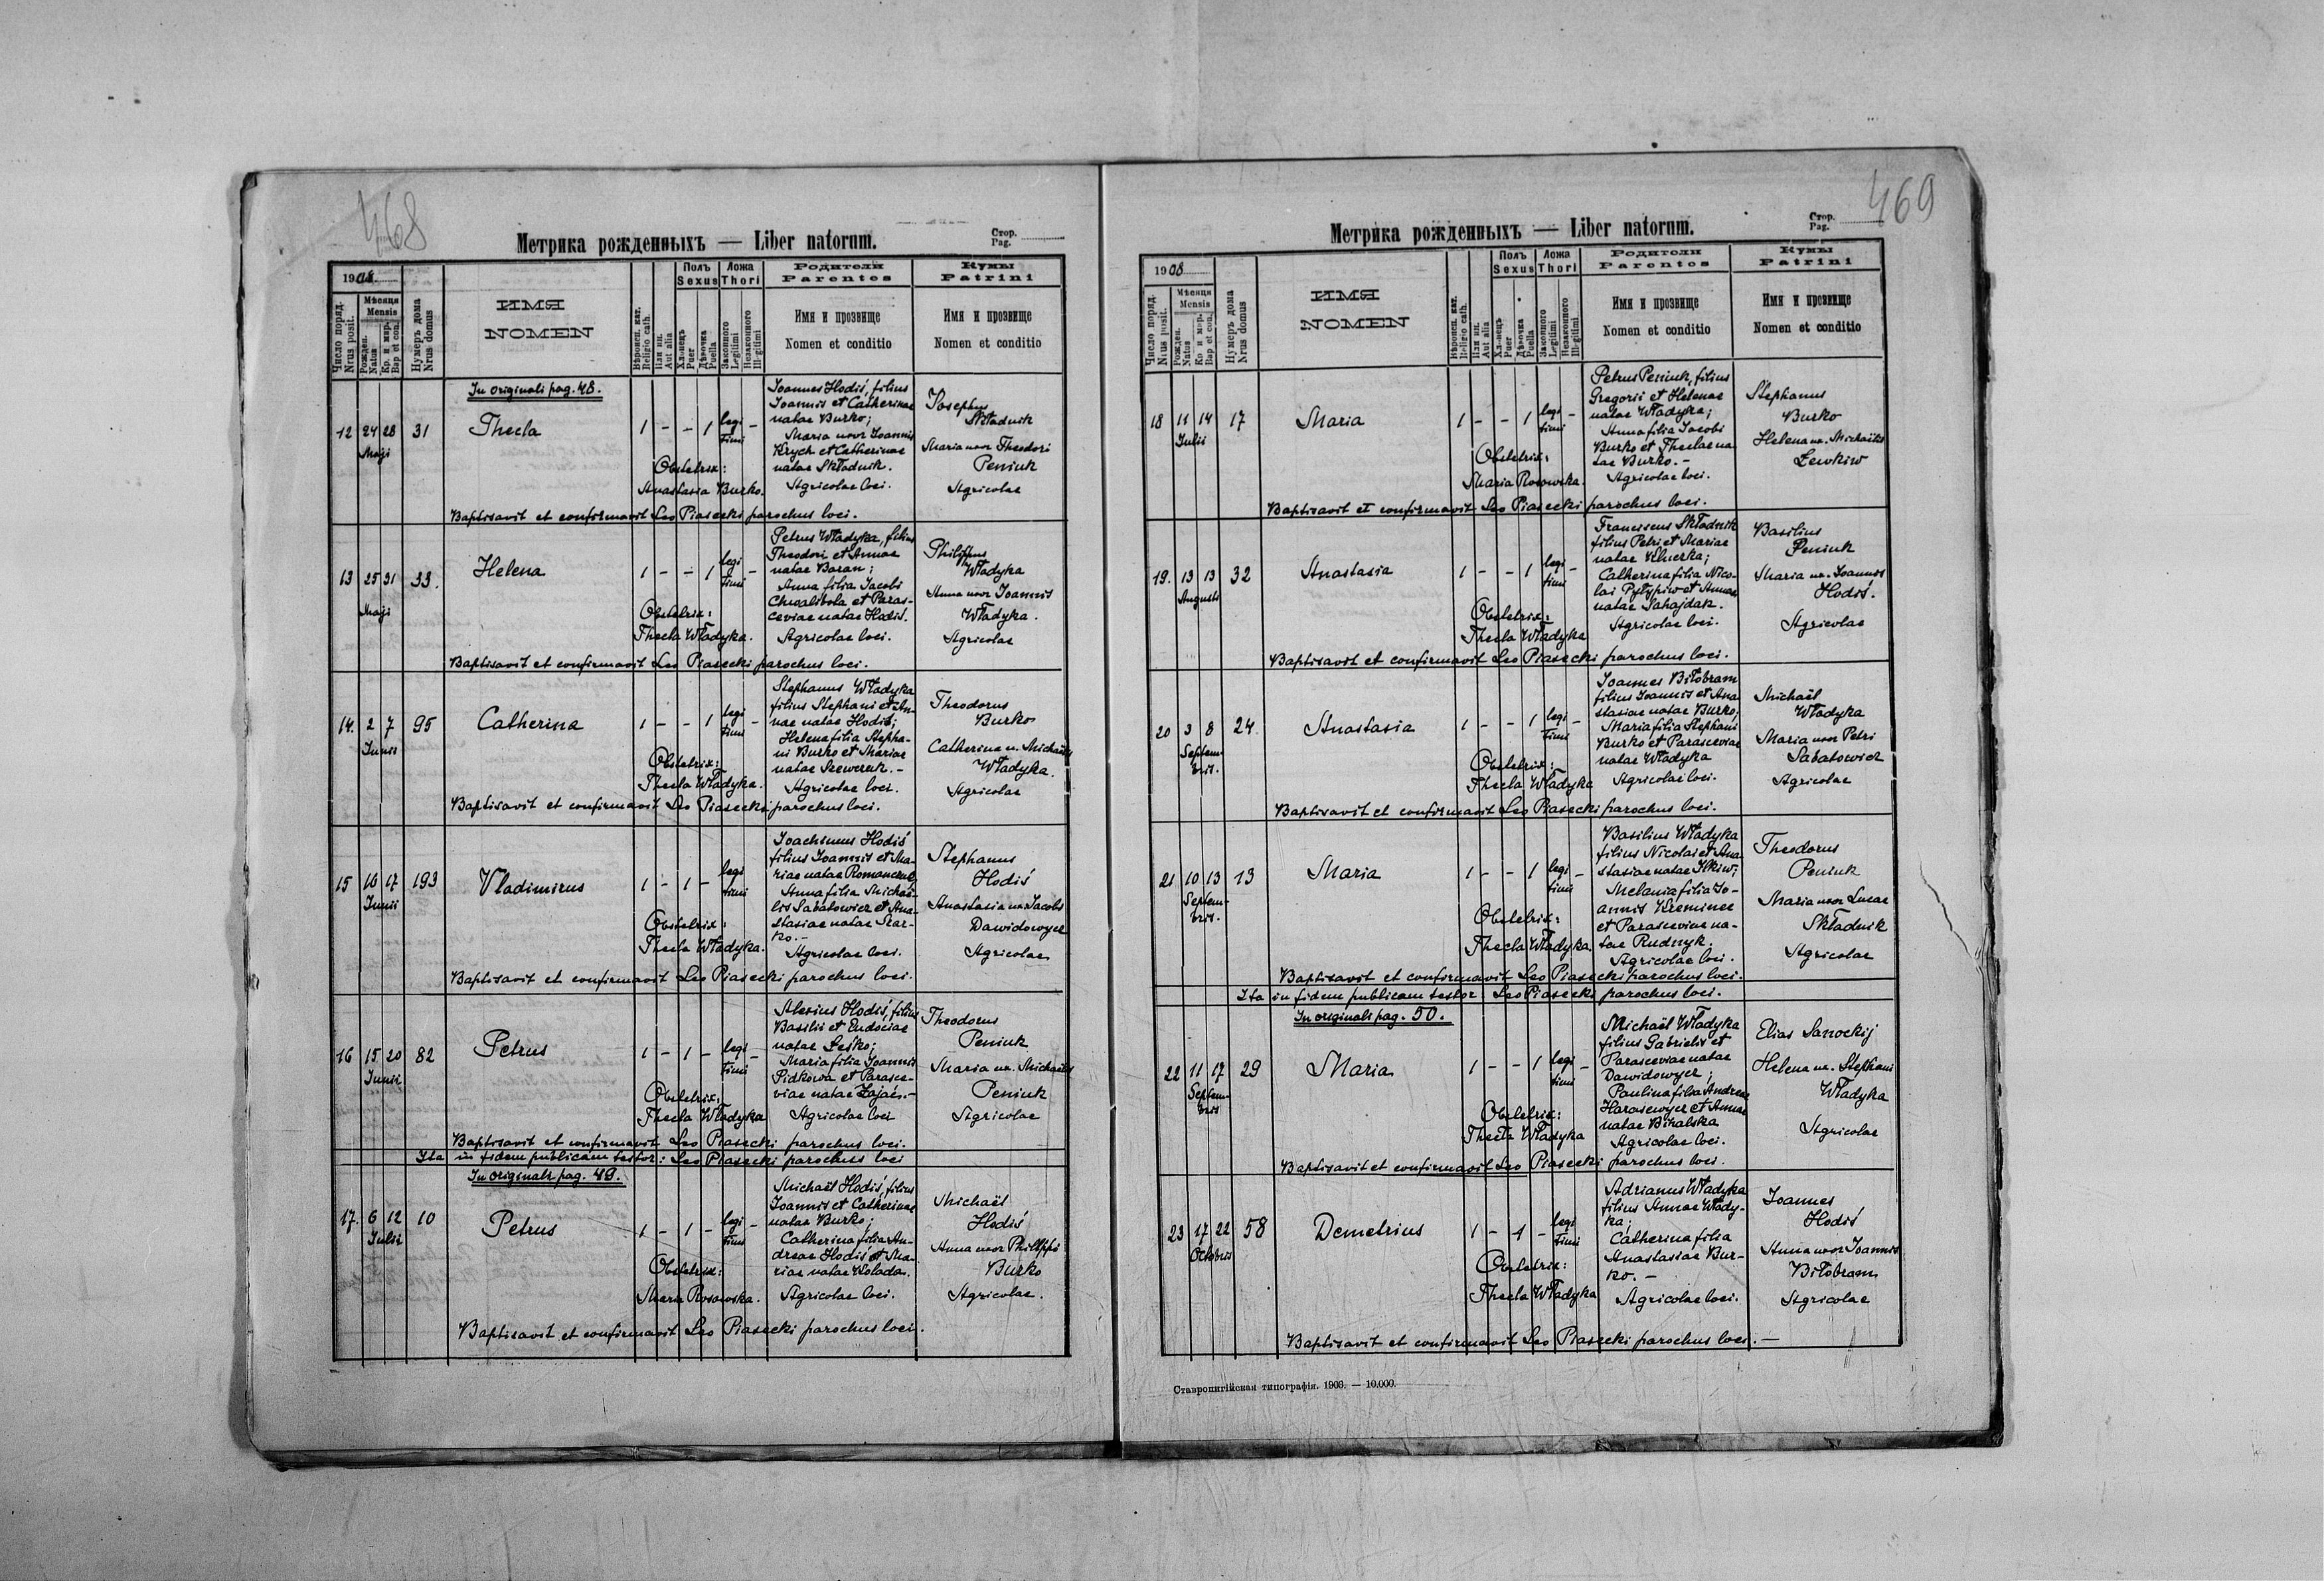 468
Метрика рожденныхъ — Liber natorum.
Стор.
Pag.
1908
Число поряд.
Nrus posit.
Мѣсяця
Mensis
Рожден.
Natus
Кр. и мир.
Bap et con.
Нумеръ дома
Nrus domus
ИМЯ
NOMEN
Вѣроисп. кат.
Religio cath.
Или ин.
Aut alia
Полъ
Sexus
Хлопецъ
Puer
Дѣвочка
Puella
Ложа
Thori
Законного
Legitimi
Незаконного
Illegitimi
Родители
Parentes
Имя и прозвище
Nomen et conditio
Кумы
Patrini
Имя и прозвище
Nomen et conditio
In originali pag. 48.
12 24 28 31 Thecla 1 - - 1 legi -
Maji timi
Obstetrix:
Anastasia Burko.
Joannes Hodiś, filius
Joannis et Catherinae
natae Burko;
Maria uxor Joannis
Krych et Catherinae
natae Składnik.
Agricolae loci.
Josephus
Składnik
Maria uxor Theodori
Peniuk
Agricolae
Baptisavit et confirmavit Leo Piasecki parochus loci.
13 25 31 33. Helena 1 - - 1 legi -
Maji timi
Obstetrix:
Thecla Władyka.
Petrus Władyka, filius
Theodori et Annae
natae Baran;
Anna filia Jacobi
Chwalibota et Paras-
ceviae natae Hodiś.
Agricolae loci.
Philippus
Władyka
Anna uxor Joannis
Władyka.
Agricolae
Baptisavit et confirmavit Leo Piasecki parochus loci.
14. 2 7 95 Catherina 1 - - 1 legi -
Junii timi
Obstetrix:
Thecla Władyka.
Stephanus Władyka
filius Stephani et An-
nae natae Hodiś;
Helena filia Stepha-
ni Burko et Mariae
natae Szewczuk. -
Agricolae loci.
Theodorus
Burko
Catherina u. Michaëlis
Władyka.
Agricolae
Baptisavit et confirmavit Leo Piasecki parochus loci.
15 16 17 193 Vladimirus 1 - 1 - legi -
Junii timi
Obstetrix:
Thecla Władyka.
Joachimus Hodiś
filius Joannis et Ma-
riae natae Romanczuk,
Anna filia Michaë-
lis Sabatowicz et Ana-
stasiae natae Szar-
ko. -
Agricolae loci.
Stephanus
Hodiś
Anastasia ux. Jacobi
Dawidowycz
Agricolae
Baptisavit et confirmavit Leo Piasecki parochus loci.
16 15 20 82 Petrus 1 - 1 - legi -
Junii timi
Obstetrix:
Thecla Władyka
Alexius Hodiś, filius
Basilii et Eudociae
natae Leśko;
Maria filia Joannis
Pidkowa et Parasce-
viae natae Zajac. -
Agricolae loci
Theodorus
Peniuk
Maria ux. Michaëlis
Peniuk
Agricolae
Baptisavit et confirmavit Leo Piasecki parochus loci.
Ita in fidem publicam testor: Leo Piasecki parochus loci
In originali pag. 49.
17. 6 12 10 Petrus 1 - 1 - legi -
Julii timi
Obstetrix:
Maria Rosowska.
Michaël Hodiś, filius
Joannis et Catherinae
natae Burko;
Catherina filia An-
dreae Hodiś et Ma-
riae natae Wolada.
Agricolae loci.
Michaël
Hodiś
Anna uxor Philippi
Burko
Agricolae.
Baptisavit et confirmavit Leo Piasecki parochus loci.
469
Метрика рожденныхъ — Liber natorum.
Стор.
Pag.
1908
Число поряд.
Nrus posit.
Мѣсяця
Mensis
Рожден.
Natus
Кр и мир.
Bap et con.
Нумеръ дома
Nrus domus
ИМЯ
NOMEN
Вѣроисп. кат.
Religio cath.
Или ин.
Aut alia
Полъ
Sexus
Хлопецъ
Puer
Дѣвочка
Puella
Ложа
Thori
Законого
Legitimi
Незаконого
Illegitimi
Родители
Parentes
Имя и прозвище
Nomen et conditio
Кумы
Patrini
Имя и прозвище
Nomen et conditio
18 11 14 17 Maria 1 - - 1 legi -
Julii timi
Obstetrix:
Maria Rosowska.
Petrus Peniuk, filius
Gregorii et Helenae
natae Władyka;
Anna filia Jacobi
Burko et Theclae na-
tae Burko. -
Agricolae loci.
Stephanus
Burko
Helena ux. Michaëlis
Lewkiw
Baptisavit et confirmavit Leo Piasecki parochus loci.
19. 13 13 32 Anastasia 1 - - 1 legi -
Augusti timi
Obstetrix:
Thecla Władyka
Franciscus Składnik
filius Petri et Mariae
natae Kluczka;
Catherina filia Nico-
lai Pyłypiw et Annae
natae Sahajdak.
Agricolae loci.
Basilius
Peniuk
Maria ux. Joannis
Hodiś.
Agricolae
Baptisavit et confirmavit Leo Piasecki parochus loci.
20 3 8 24. Anastasia 1 - - 1 legi -
Septem- timi
bris.
Obstetrix:
Thecla Władyka
Joannes Biłobram
filius Joannis et Ana
stasiae natae Burko;
Maria filia Stephani
Burko et Parasceviae
natae Władyka
Agricolae loci.
Michaël
Władyka
Maria uxor Petri
Sabatowicz
Agricolae
Baptisavit et confirmavit Leo Piasecki parochus loci.
21 10 13 13 Maria 1 - - 1 legi -
Septem- timi
bris.
Obstetrix:
Thecla Władyka.
Basilius Władyka
filius Nicolai et Ana
stasiae natae Ilkiw;
Melania filia Jo-
annis Kreminec
et Parasceviae na-
tae Rudnyk.
Agricolae loci.
Theodorus
Peniuk
Maria uxor Lucae
Składnik
Agricolae
Baptisavit et confirmavit Leo Piasecki parochus loci.
Ita in fidem publicam testor Leo Piasecki parochus loci.
In originali pag. 50.
22 11 17 29 Maria 1 - - 1 legi -
Septem- timi
bris
Obstetrix:
Thecla Władyka
Michaël Władyka
filius Gabrielis et
Parasceviae natae
Dawidowycz;
Paulina filia Andreae
Harasewycz et Annae
natae Bihalska
Agricolae loci.
Elias Sanockij
Helena ux. Stephani
Władyka
Agricolae
Baptisavit et confirmavit Leo Piasecki parochus loci.
23 17 22 58 Demetrius 1 - 1 - legi
Octobris timi
Obstetrix:
Thecla Władyka
Adrianus Władyka
filius Annae Włady-
ka;
Catherina filia
Anastasiae Bur-
ko. -
Agricolae loci.
Joannes
Hodiś
Anna uxor Joannis
Biłobram
Agricolae
Baptisavit et confirmavit Leo Piasecki parochus loci. —
Ставропигійская типографія. 1903. — 10.000.